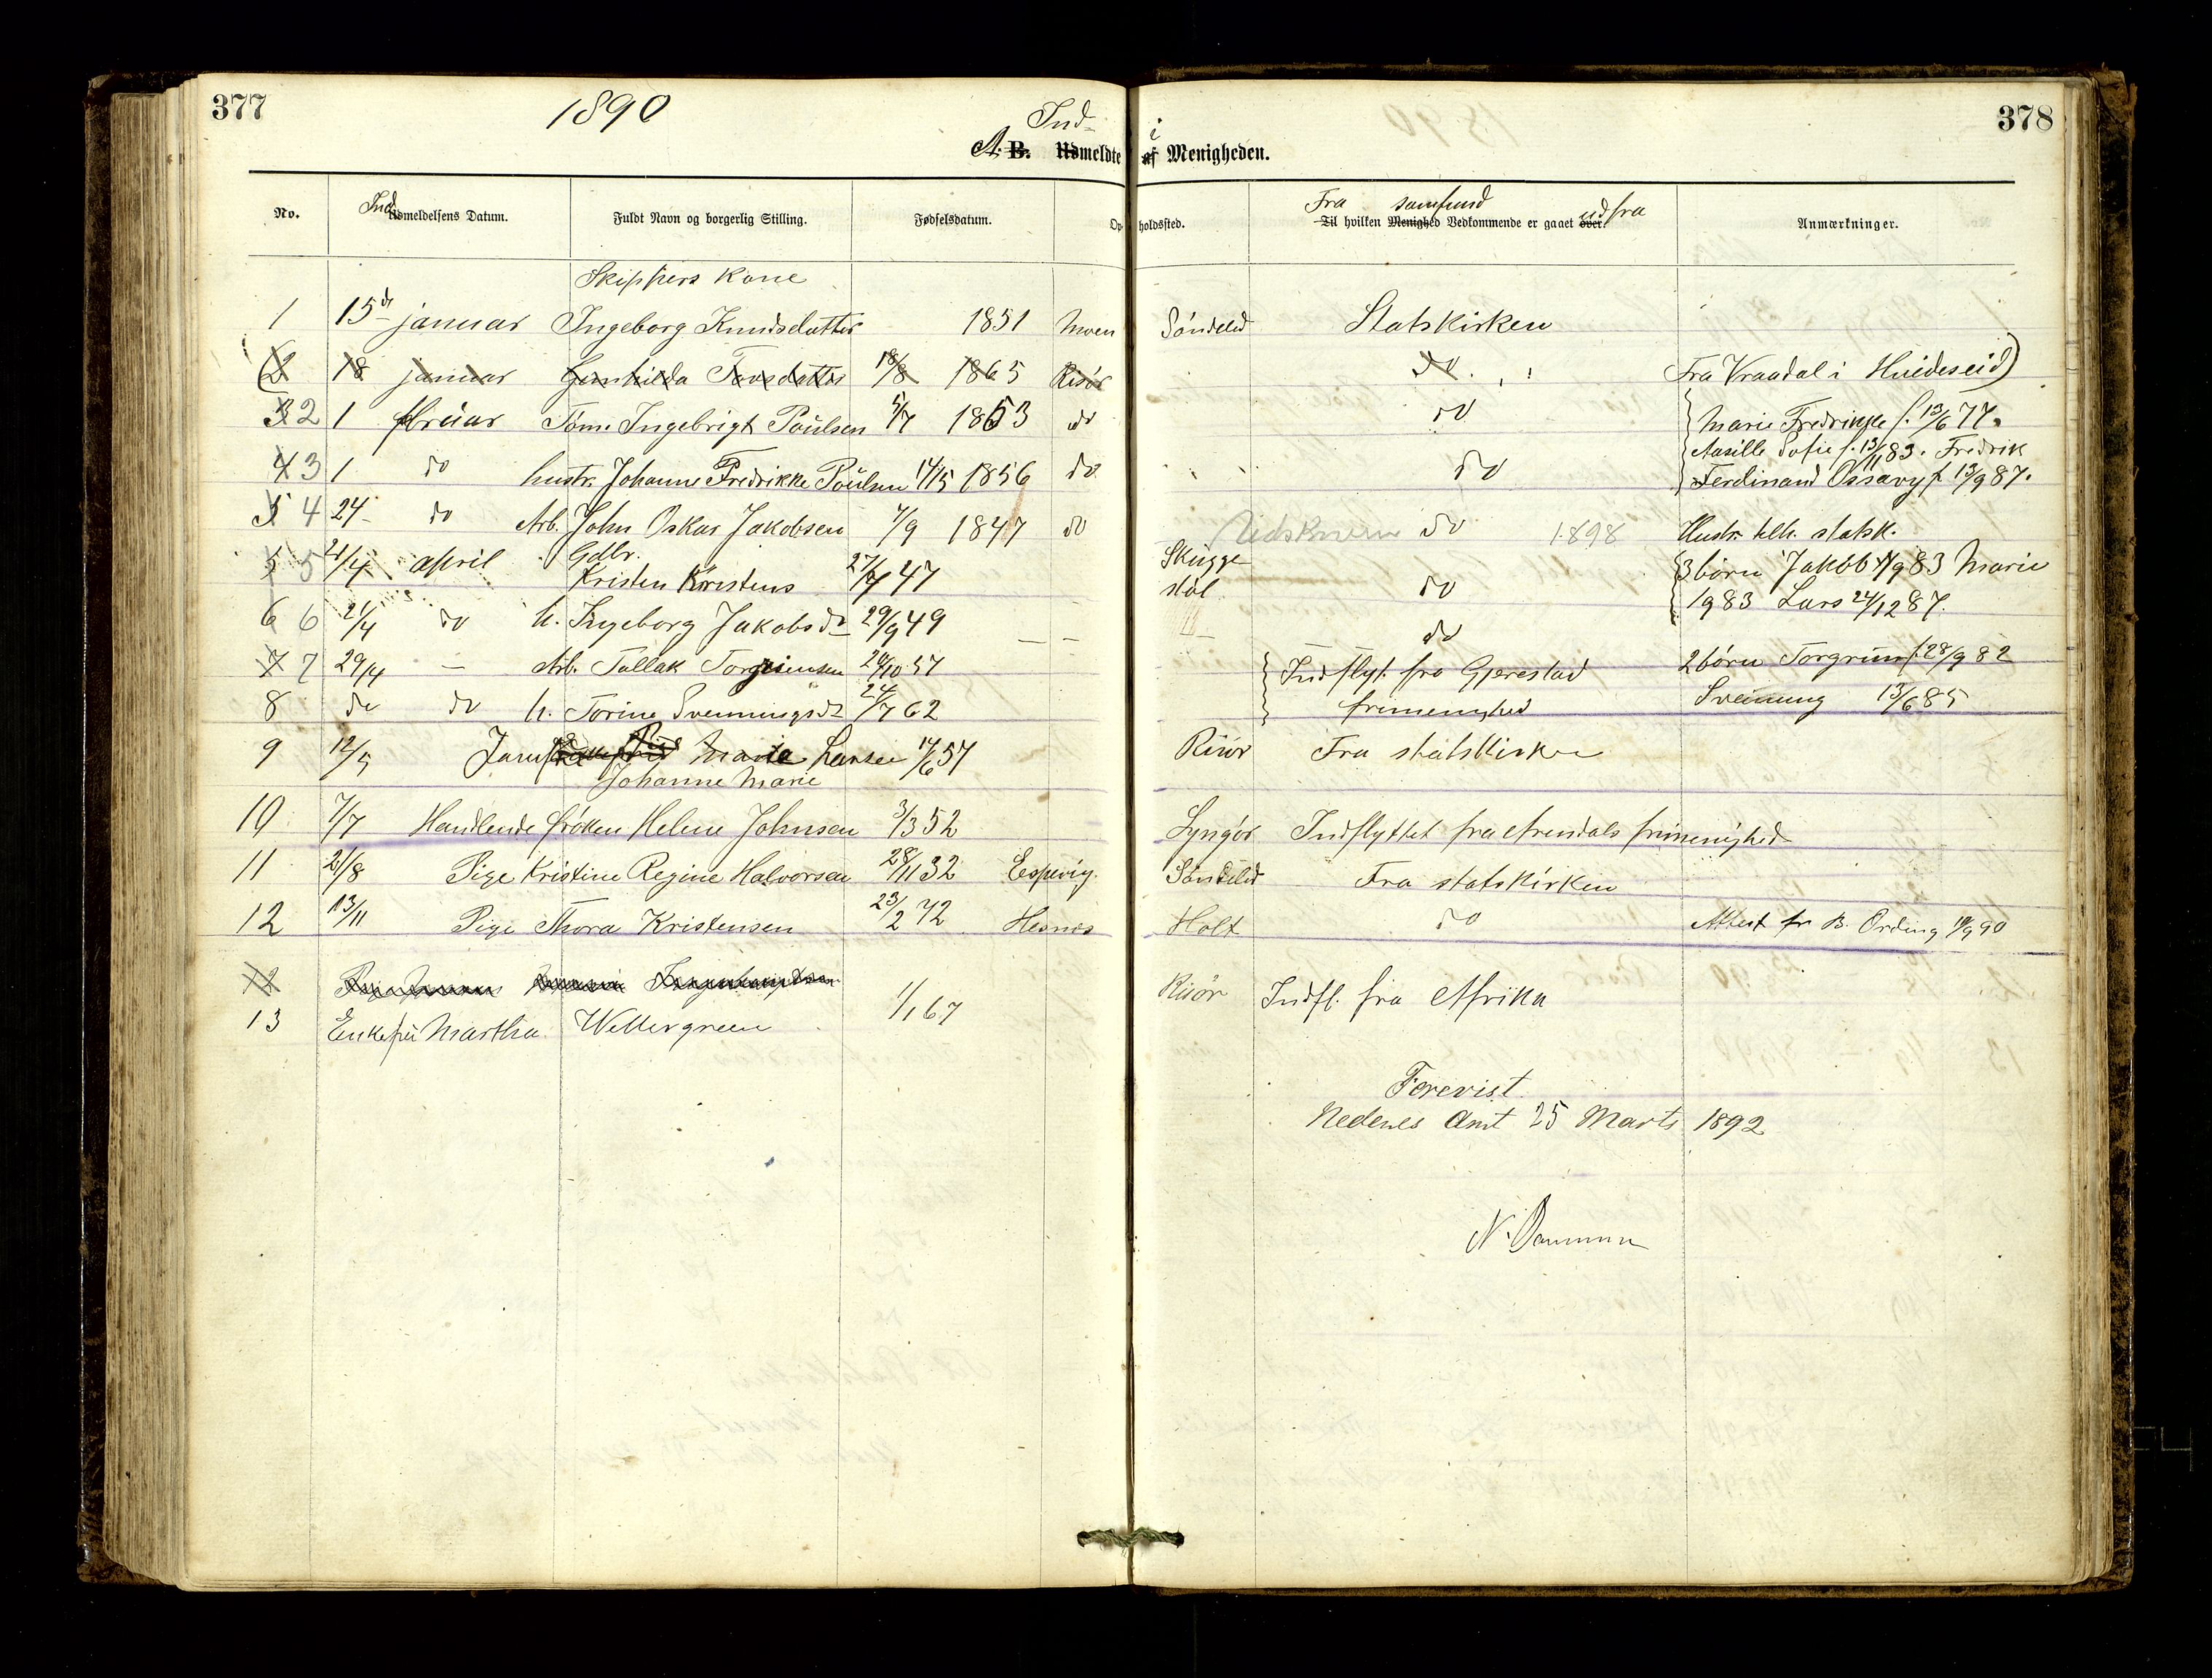 377
1890
378
Ind-
i
A. B. Udmeldte af Menigheden.
No.
Ind
Udmeldelsens Datum.
Fuldt Navn og borgerlig Stilling.
Fødselsdatum.
Opholdssted.
Fra samfund udfra
Til hvilken Menighed Vedkommende er gaaet over.
Anmærkninger.
Skippers Kone
1 15d januar Ingeborg Knudsdatter 1851 Moen Søndeled Statskirken
(2 18 januar Gunhilda Tovsdatter 18/8 1865 Risør do. Fra Vraadal i Hvideseid)
3 2 1 Tøm. Ingebrigt Poulsen 5/7 1853 do do Marie Fredrikke f. 13/6 77.
4 3 1 do hustr. Johanne Fredrikke Poulsen 14/5 1856 do do Sofie f. 13/11 83. Fredrik
Ferdinand f. 13/9 87.
5 4 24 do Arb. John Oskar Jakobsen 7/9 1847 do do 1898 Hustr. tilh. statsk.
5 21/4 april Gdbr.
Kristen Kristens 27/7 47 Skugge
støl do 3 børn Jakob 83 Marie
1983 Lars 24/12 87.
6 6 21/4 do h. Ingeborg Jakobsd. 29/9 49 — — do
7 7 29/4 — Arb. Tallak 57 Indflyt. fra Gjerestad 2 børn Torgrim f. 28/9 82
8 do do h. Torine Svenningsd. 24/7 62 frimenighed Sveinung 13/6 85
9 12/5 Marie Larsen 14/6 57 Risør Fra statskirken
Johanne Marie
10 7/7 Handlende frøken Helene Johnsen 3/3 52 Lyngør Indflyttet fra Arendals frimenighed
11 21/8 Pige Kristine Regine Halvorsen 28/11 32 Espevig. Søndeled Fra statskirken
12 13/11 Pige Thora Kristensen 23/2 72 Hesnes Holt do Attest fr B. Ording 90
12
13 Enkefru Martha Wettergreen 1/1 67 Risør Indfl. fra Afrika
Forevist.
Nedenes Amt 25 Marts 1892